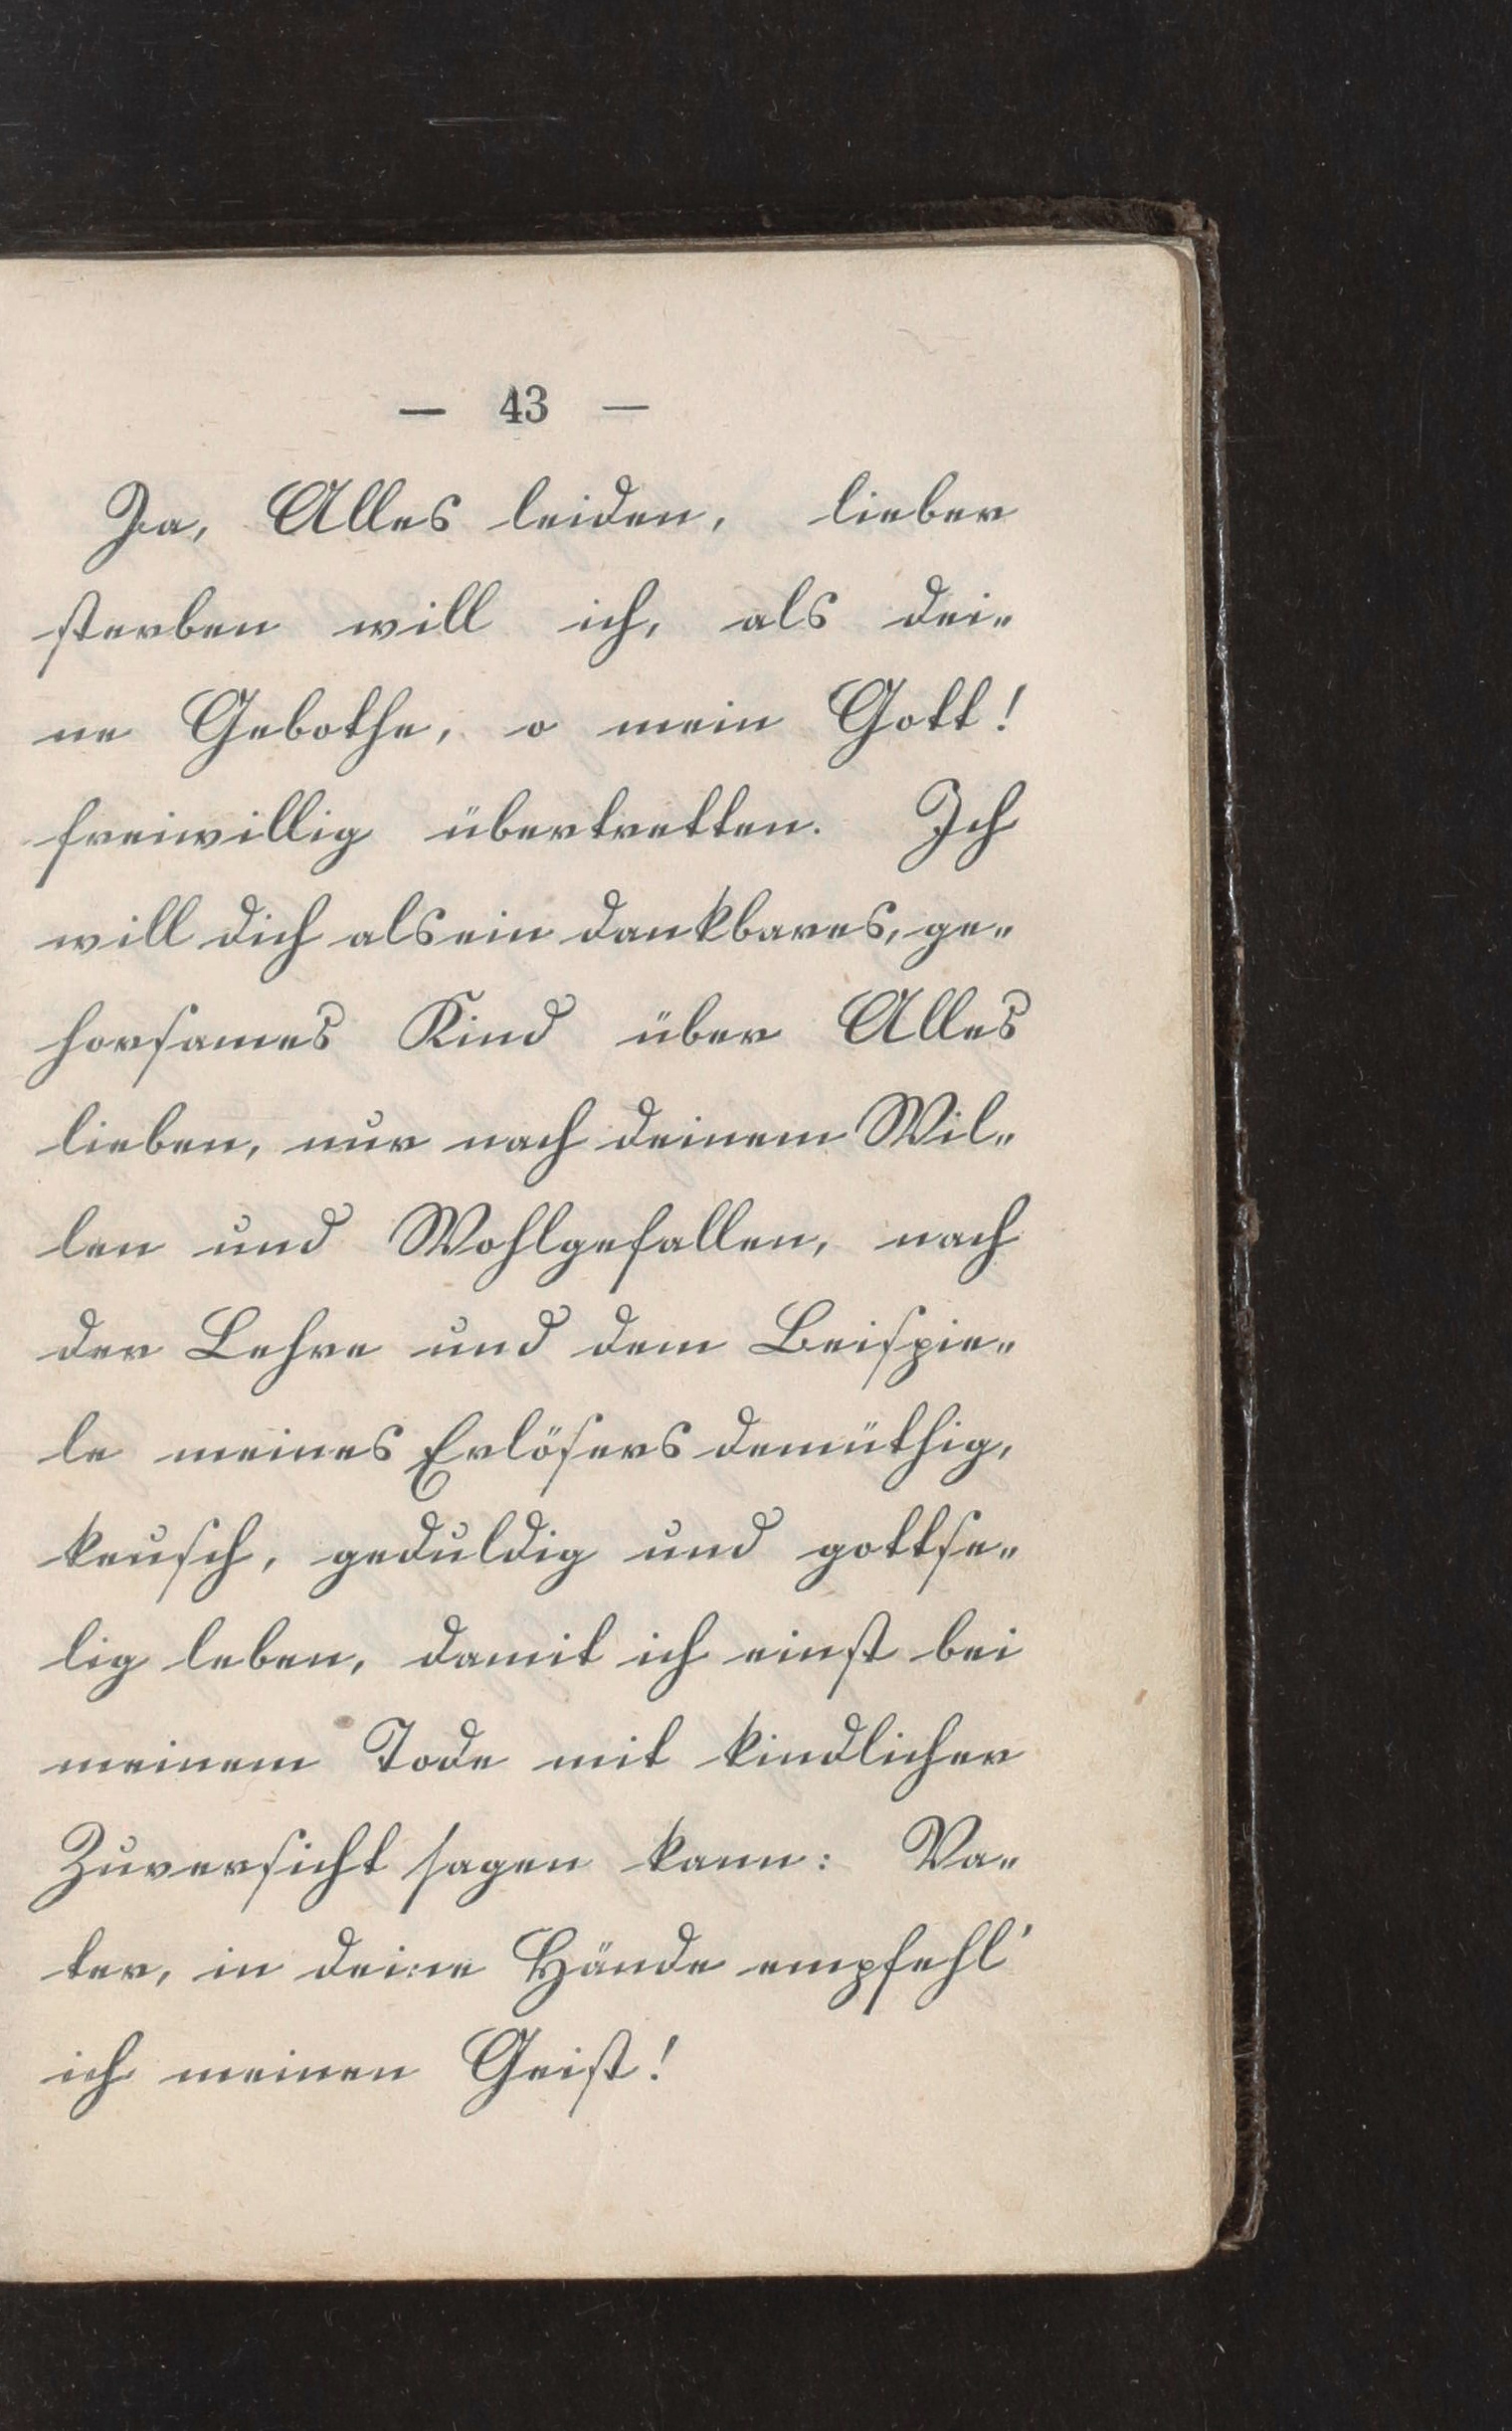 — 43 —
Ja, Alles leiden, lieber
sterben will ich, als dei„
ne Gebothe, o mein Gott!
freiwillig übertretten. Ich
will dich als ein dankbares, ge„
horsames Kind über Alles
lieben, nur nach deinem Wil„
len und Wohlgefallen, nach
der Lehre und dem Beispie„
le meines Erlösers demüthig,
keusch, geduldig und gottse„
lig leben, damit ich einst bei
meinem Tode mit kindlicher
Zuversicht sagen kann: Va„
ter, in deine Hände empfehl'
ich meinen Geist!